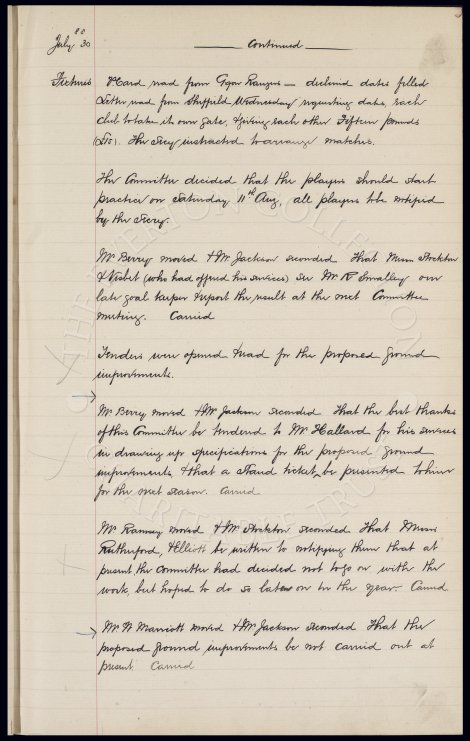 80
July 30 Continued
Fixtures Card read from Ayr Rangers – declined dates filled
Letter read from Sheffield Wednesday requesting dates, each
club to take its own gate, & giving each other Fifteen pounds
(£15). The Secy instructed to arrange matches.
The Committee decided that the players should start
practice on Saturday 11th Aug, all players to be notified
by the Secy.
Mr Berry moved & Mr Jackson seconded That Messrs Stockton
& Nisbet (who had offered his services) see Mr R Smalley our
late goal keeper & report the result at the next Committee
meeting. Carried
Tenders were opened & read for the proposed ground
improvements.
Mr Berry moved & Mr Jackson seconded That the best thanks
of this Committee be tendered to Mr Hallard for his services
in drawing up specifications for the proposed ground
improvements, & that a stand ticket be presented to him
for the next season. Carried
Mr Ramsay moved & Mr Stockton seconded That Messrs
Rutherford, & Elliott be written to notifying them that at
present the Committee had decided not to go on with the
work, but hoped to do so later on in the year. Carried
Mr W Marriott moved & Mr Jackson seconded That the
proposed ground improvements be not carried out at
present Carried
THE EVERTON COLLECTION
CHARITABLE TRUST